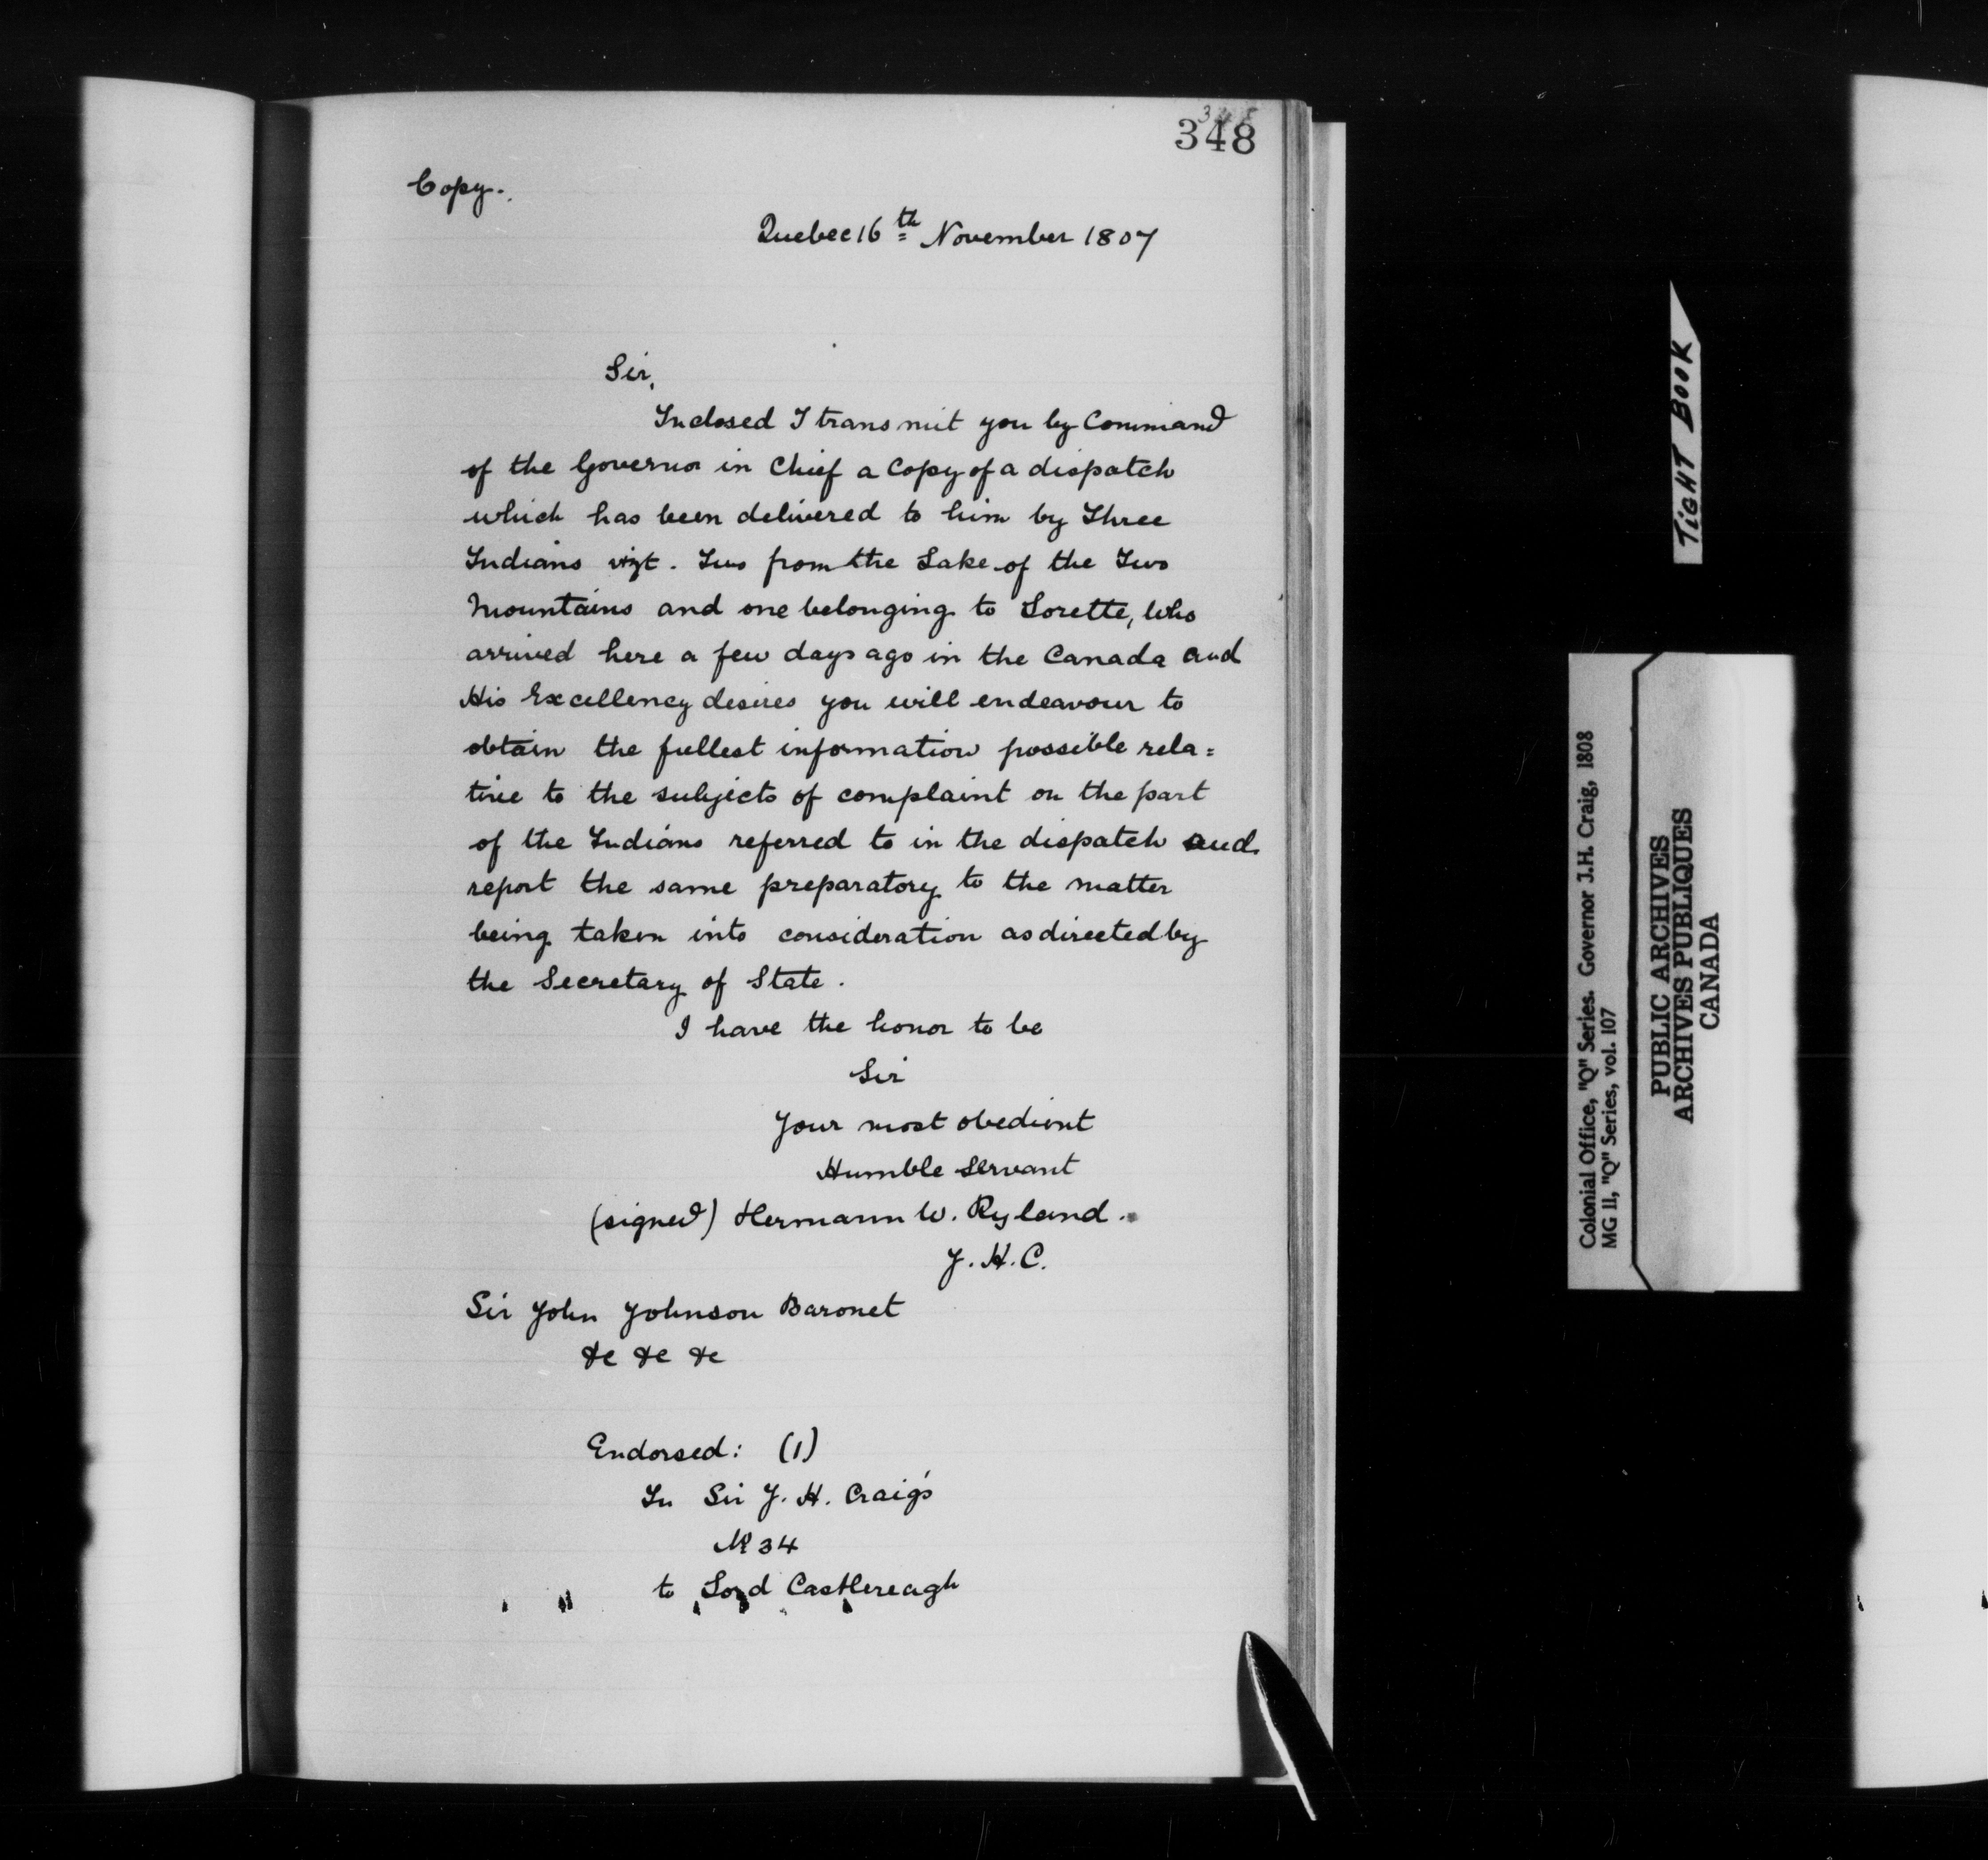 348
Copy.
Quebec 16th November 1807
Sir,
Inclosed I transmit you by Command
of the Governor in Chief a Copy of a dispatch
which has been delivered to him by Three
Indians vizt. Two from the Lake of the Two
Mountains and one belonging to Lorette, who
arrived here a few days ago in the Canada and
His Excellency desires you will endeavour to
obtain the fullest information possible rela=
tive to the subjects of complaint on the part
of the Indians referred to in the dispatch and
report the same preparatory to the matter
being taken into consideration as directed by
the Secretary of State.
I have the honor to be
Sir
Your most obedient
Humble Servant
(signed) Hermann W. Ryland.
J. H. C.
Sir John Johnson Baronet
&c &c &c
Endorsed: (1)
In Sir J. H. Craig's
No 34
to Lord Castlereagh
TiGHT BOOK
Colonial Office, "Q" Series. Governor J.H. Craig, 1808
MG 11, "Q" Series, vol. 107
PUBLIC ARCHIVES
ARCHIVES PUBLIQUES
CANADA